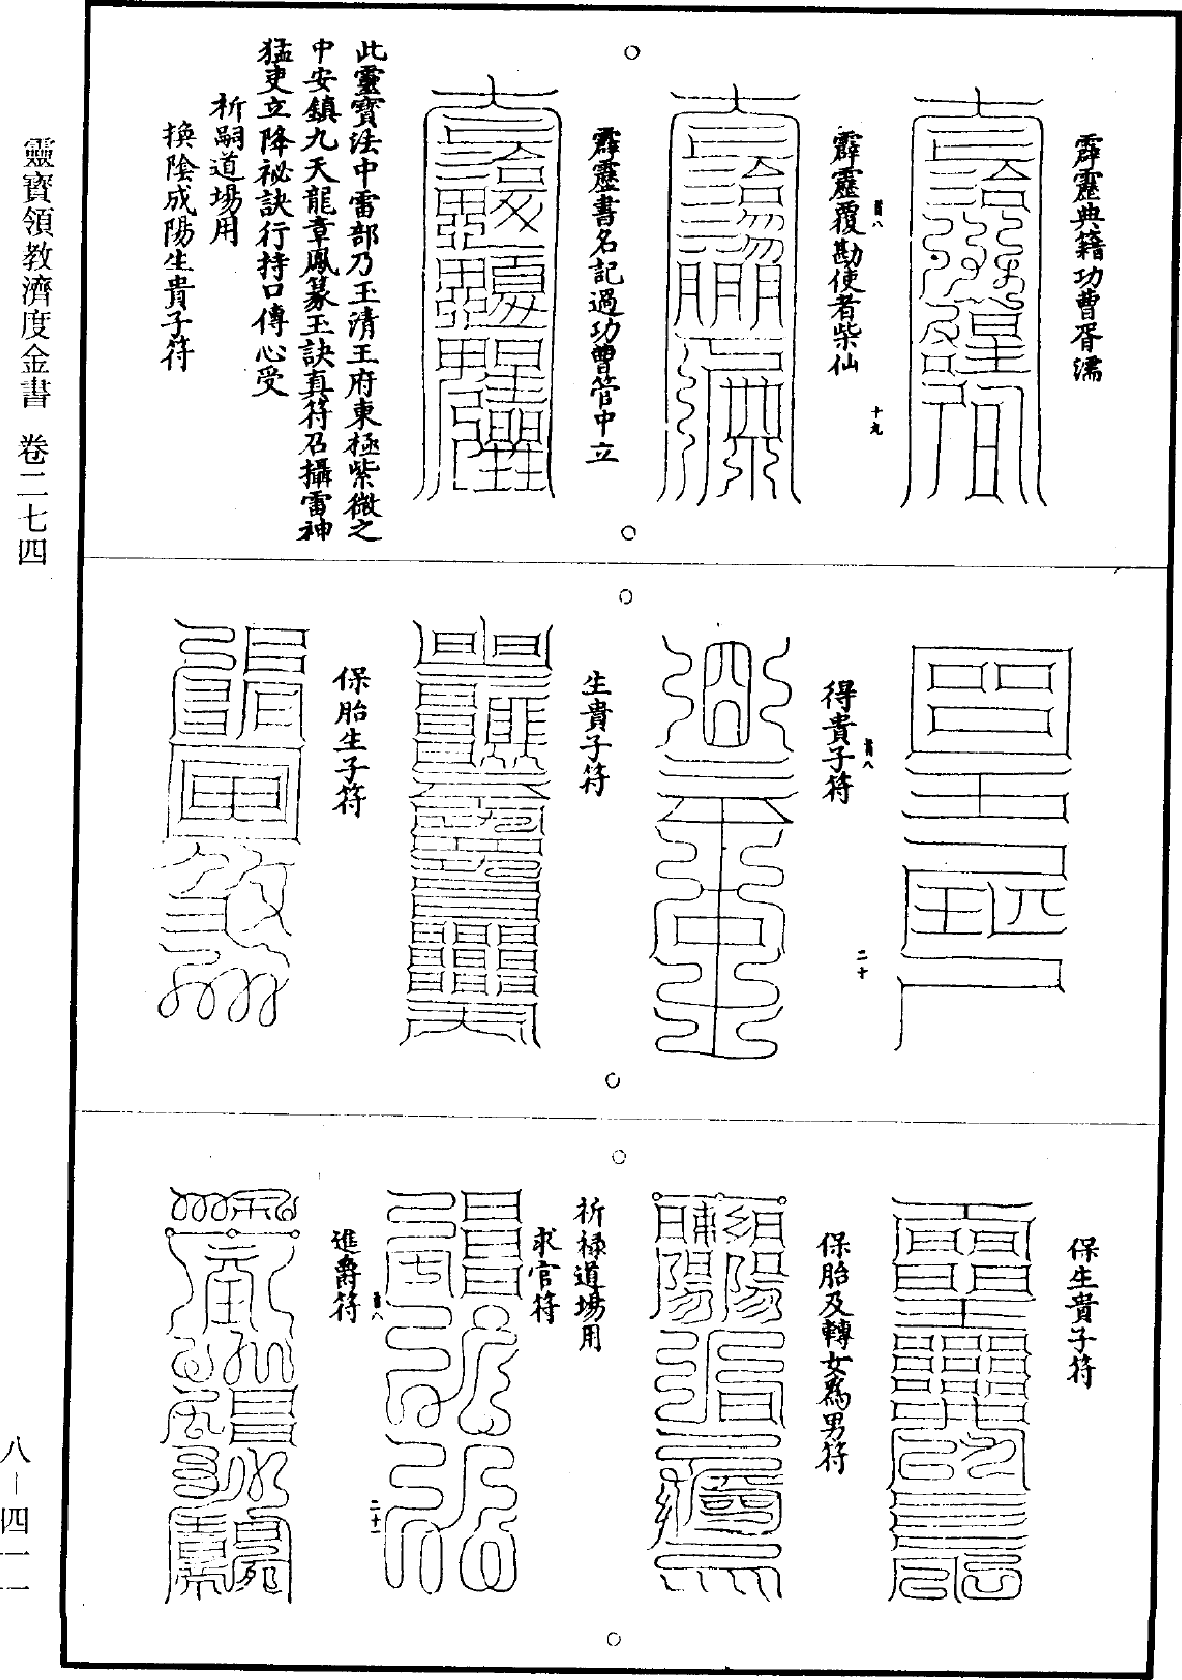 霹靂典籍功曹胥濡
霹靂覆勘使者柴仙
十九
霹靂書名記過功曹管中立
此靈寶法中雷部乃玉清王府東極紫微之
中安鎮九天龍章鳳篆玉訣真符召攝雷神
猛吏立降祕訣行持口傳心受
祈嗣道場用
換陰成陽生貴子符
得貴子符
二十
生貴子符
保胎生子符
保生貴子符
保胎及轉女為男符
祈祿道場用
求官符
二十一
進爵符
靈寶領教濟度金書 卷二七四
八—四一一